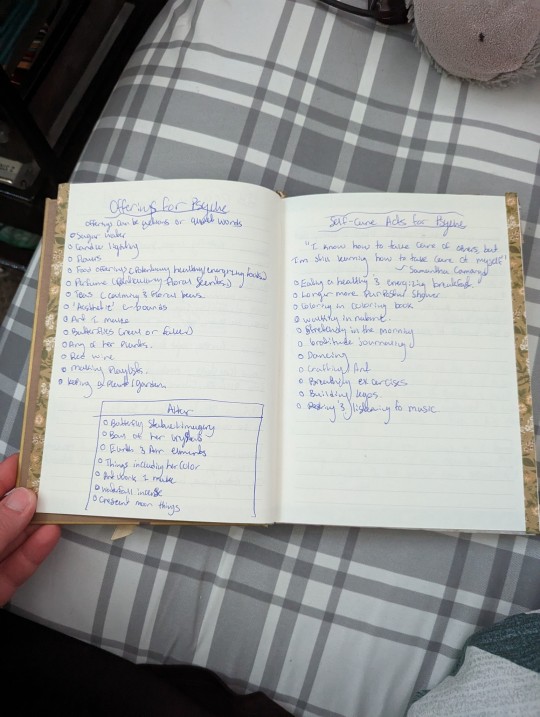 Offerings for Psyche
offerings can be actions or words
Sugar water
Candle lighting
Flowers
Food offerings (Particularly healthy/energizing foods)
Perfume (Particularly floral scents)
Teas (calming & floral teas)
"Aesthetic" e-boards
Art I make
Butterflies (real or faked)
Any of her Plants
Red wine
making Playlists
Keeping a Plant/garden
Altar
Butterfly statue/imagery
Box of her crystals
Earth & Air elements
Things including her color
Artwork I make
waterfall incense
Crescent moon things
Self-Care Acts for Psyche
"I know how to take care of others but
I'm still learning how to take care of myself"
Samantha
Eating a healthy & energizing breakfast
Longer more Purposeful shower
Coloring in coloring book
walking in nature
Stretching in the morning
Gratitude journaling
Dancing
Crafting/Art
Breathing exercises
Building legos
Resting & listening to music